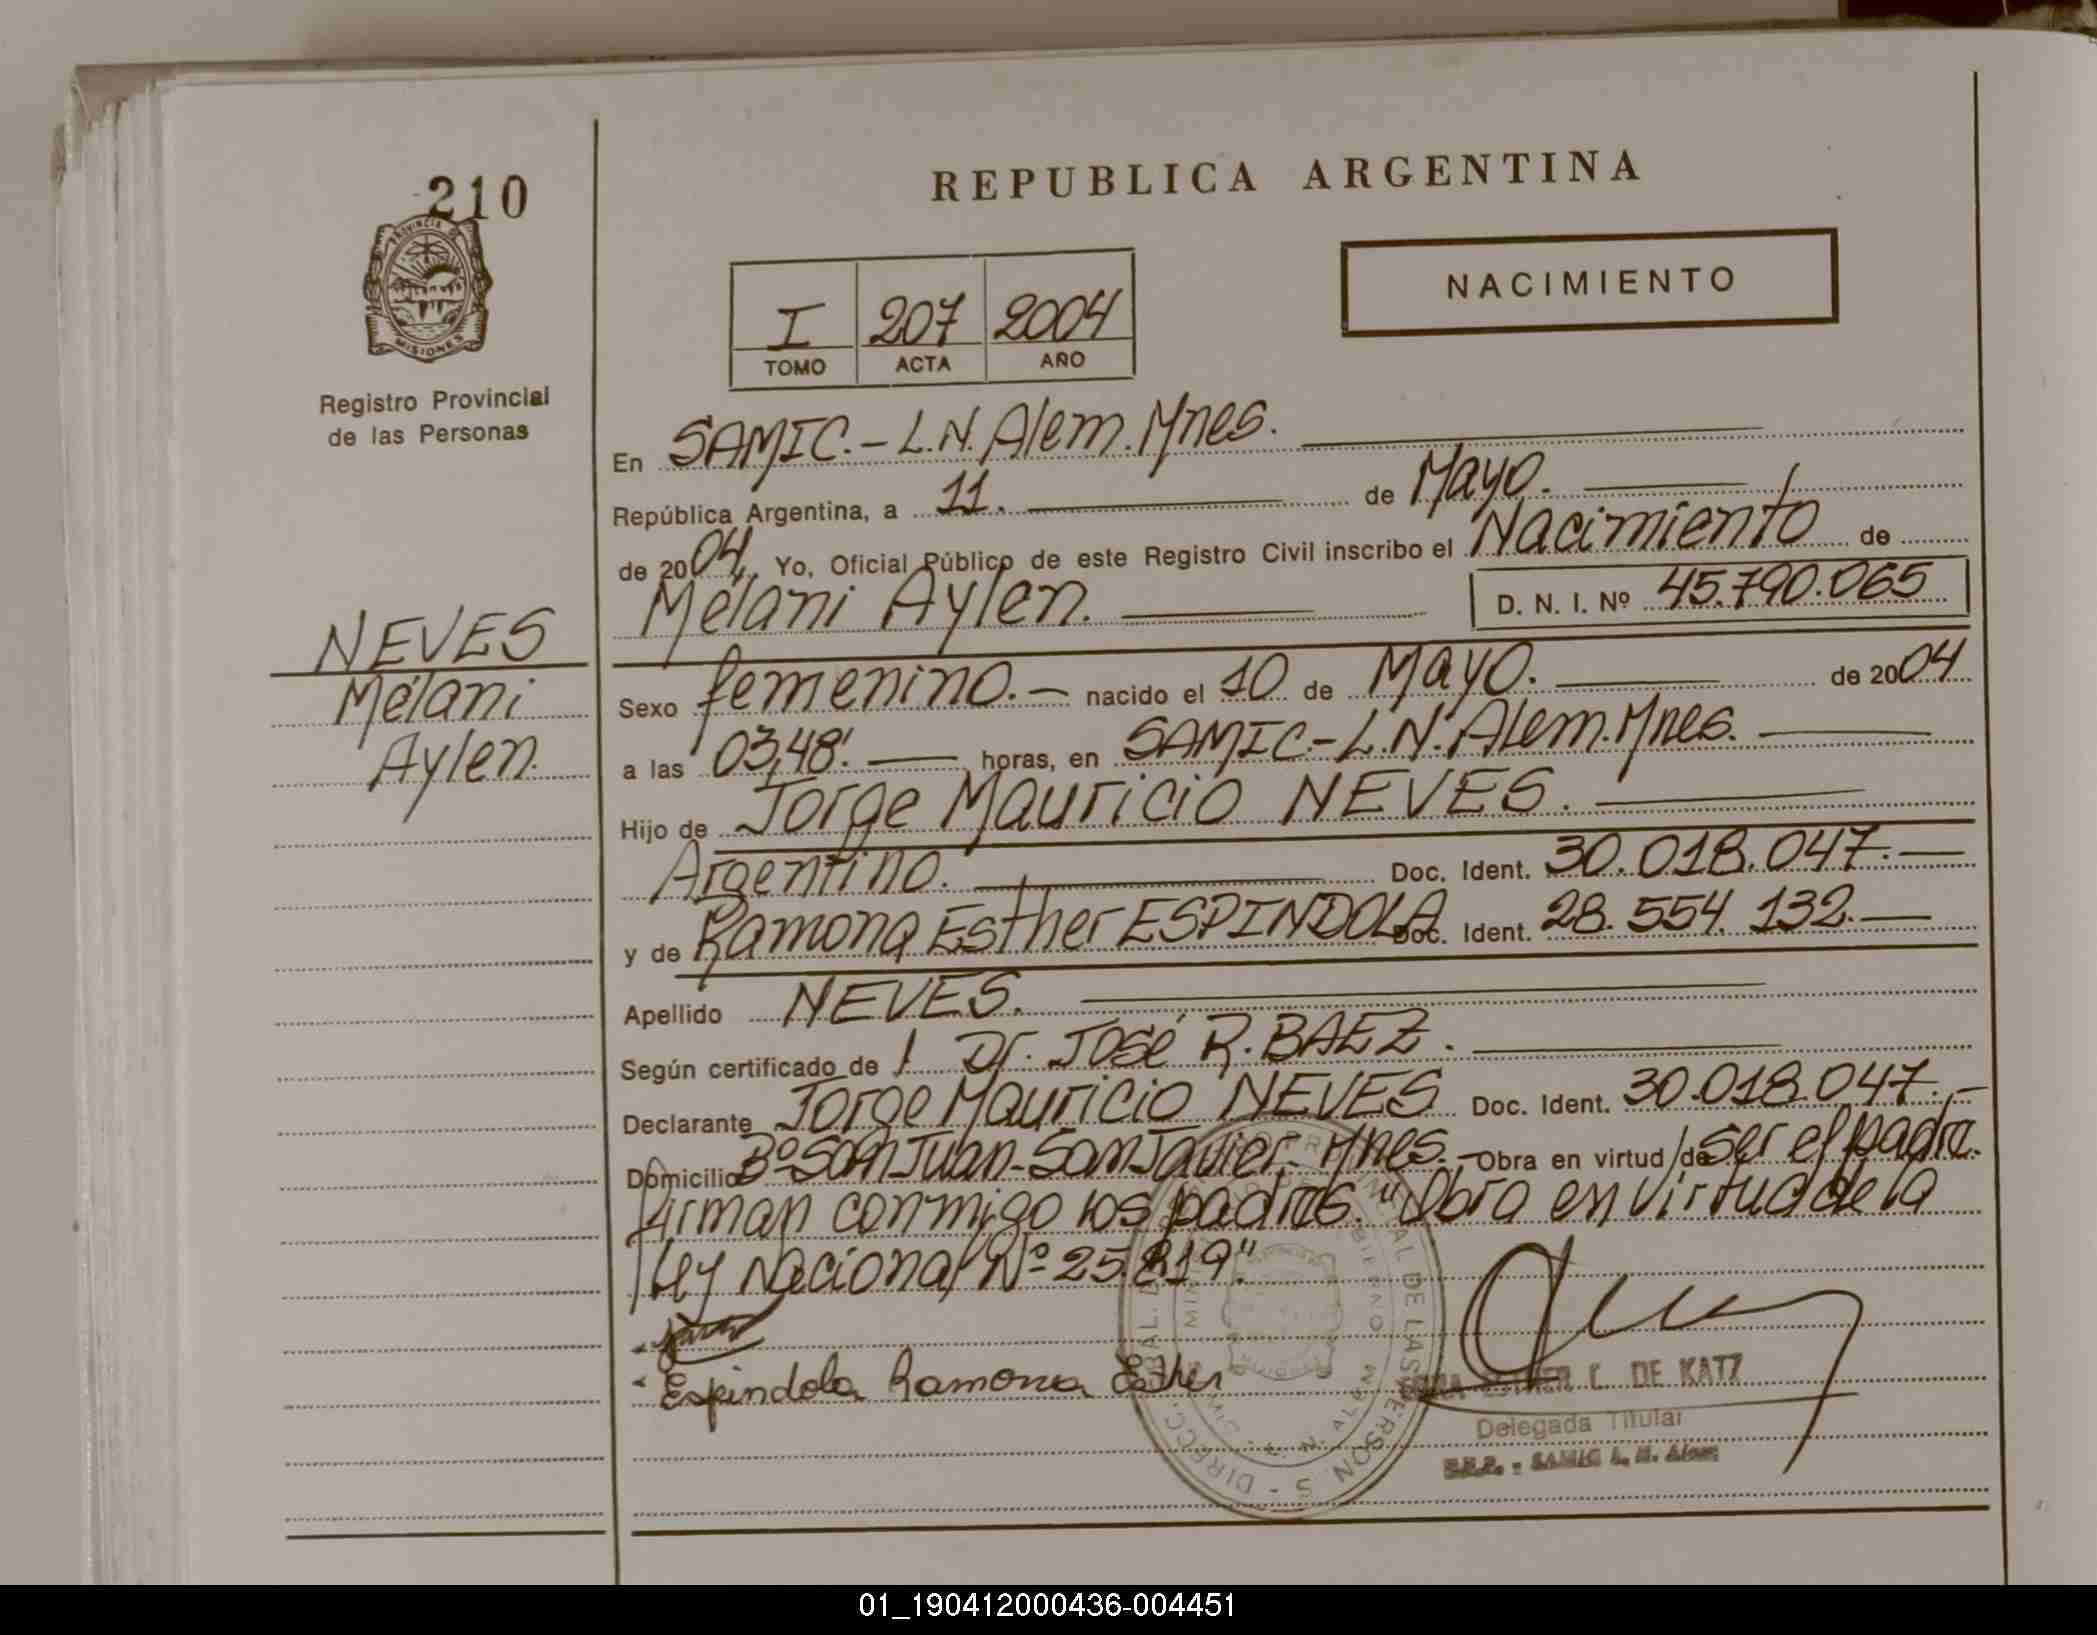 210
PROVINCIA DE
MISIONES
Registro Provincial
de las Personas
NEVES
Mélani
Aylen.
REPUBLICA ARGENTINA
NACIMIENTO
I 207 2004
TOMO ACTA AÑO
En SAMIC.- L.N. Alem. Mnes.
República Argentina, a 11. de Mayo.
de 2004, Yo, Oficial Público de este Registro Civil inscribo el Nacimiento de
Mélani Aylen. D. N. I. Nº 45.790.065
Sexo femenino.- nacido el 10 de Mayo. de 2004
a las 03,48'. horas, en SAMIC.- L.N. Alem. Mnes.
Hijo de Jorge Mauricio NEVES.
Argentino. Doc. Ident. 30.018.047.-
y de Ramona Esther ESPINDOLA Doc. Ident. 28.554.132.-
Apellido NEVES.
Según certificado de / Dr. José R. BAEZ.
Declarante Jorge Mauricio NEVES Doc. Ident. 30.018.047.-
Domicilio Bº San Juan - San Javier - Mnes.- Obra en virtud / de ser el padre.
Firman conmigo los padres. "Obra en virtud de la
Ley Nacional Nº 25.819".
Espindola Ramona Esther
C. DE KATZ
Delegada Titular
SAMIC L. N. Alem
01_190412000436-004451